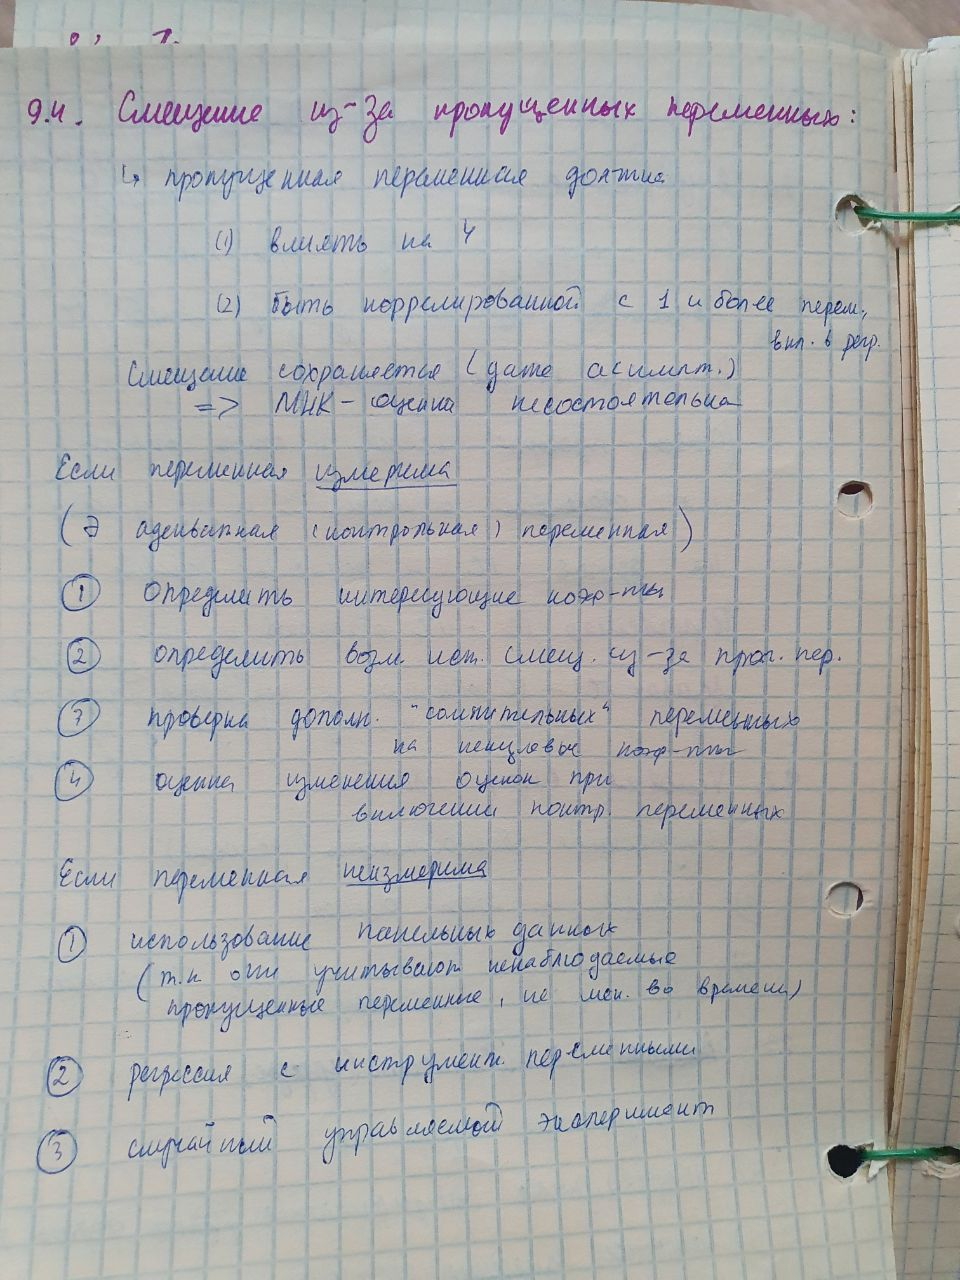 9.4. Смещение из-за пропущенных переменных:
↳ пропущенная переменная должна
(1) влиять на Y
(2) быть коррелированной с 1 и более перем.,
вкл. в регр.
Смещение сохраняется (даже асимпт.)
=> МНК-оценка несостоятельна
Если переменная измерима
(∃ адекватная (контрольная) переменная)
1 определить интересующие коэф-ты
2 определить возм. ист. смещ. из-за проп. пер.
3 проверка дополн. "сомнительных" переменных
на ненулевые коэф-ты
4 оценка изменения оценок при
включении контр. переменных
Если переменная неизмерима
1 использование панельных данных
(т.к они учитывают ненаблюдаемые
пропущенные переменные, не мен. во времени)
2 регрессия с инструмент. переменными
3 случайный управляемый эксперимент